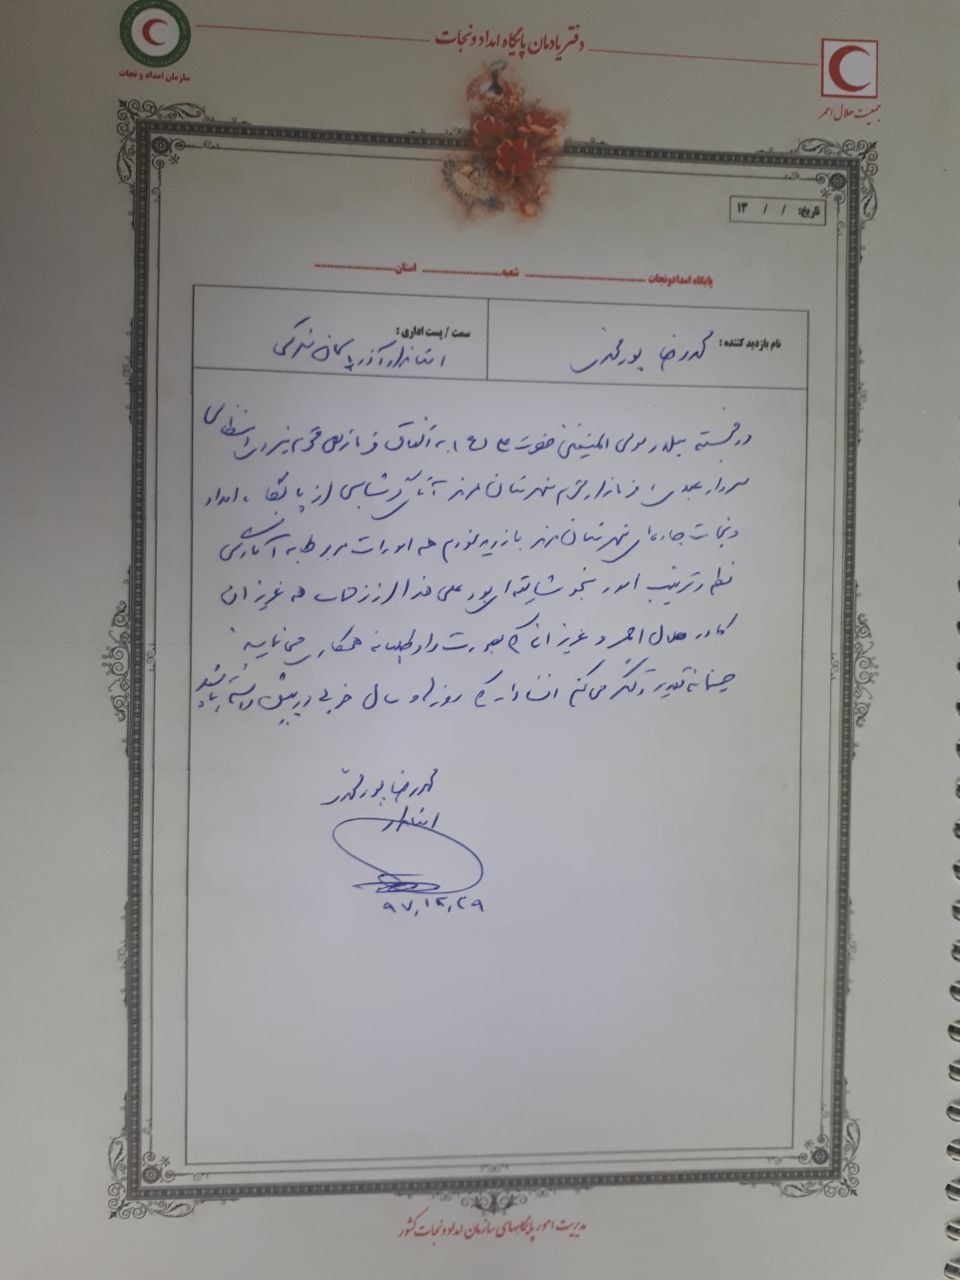 دفتر یادمان پایگاه امداد و نجات
سازمان امداد و نجات
جمعیت هلال احمر
تاریخ: / / ۱۳
پایگاه امداد و نجات ........ شعبه ........ استان ........
نام بازدید کننده : محمدرضا پورمحمدی
سمت / پست اداری : استاندار آذربایجان شرقی
در خجسته میلاد مولی به اتفاق فرمانده محترم نیروی انتظامی
سردار عبدی، فرماندار محترم شهرستان مرند آقای از پایگاه امداد
و نجات جاده‌ای شهرستان مرند بازدید نمودم همه امورات مربوط به
نظم و ترتیب امور بنحو شایسته‌ای بود از زحمات همه عزیزان
کادر هلال احمر و عزیزانی که بصورت داوطلبانه همکاری می‌نمایند
صمیمانه تقدیر و تشکر می‌کنم انشاءالله که روزها و سال خوبی در پیش داشته باشید
محمدرضا پورمحمدی
استاندار
۹۷,۱۲,۲۹
مدیریت امور پایگاههای سازمان امداد و نجات کشور